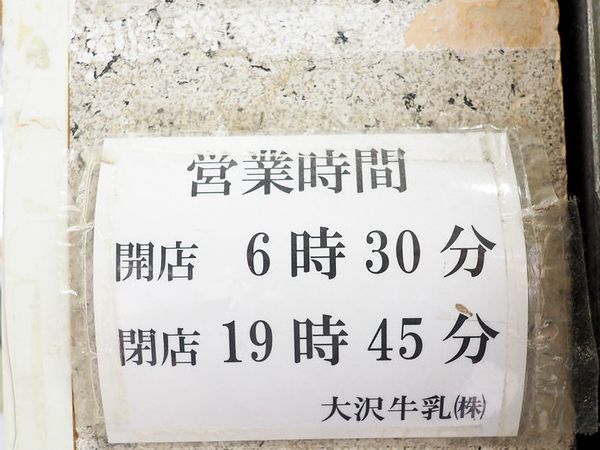 営業時間
開店 6時30分
閉店 19時45分
大沢牛乳㈱